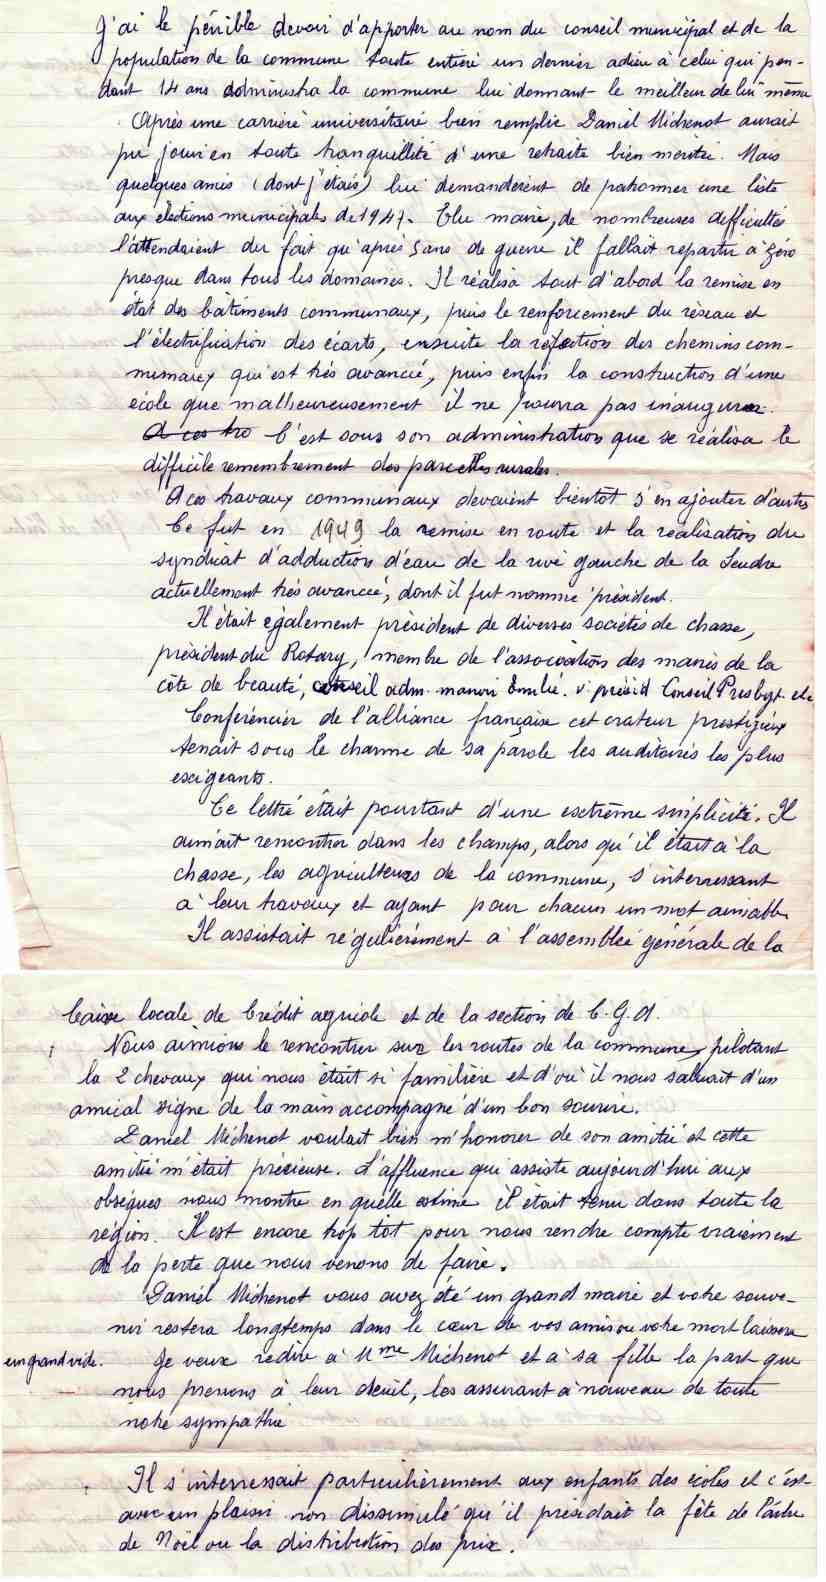 J'ai le pénible devoir d'apporter au nom du conseil municipal et de la
population de la commune toute entière un dernier adieu à celui qui pen-
dant 14 ans administra la commune lui donnant le meilleur de lui même
Après une carrière universitaire bien remplie Daniel Michenot aurait
pu jouir en toute tranquillité d'une retraite bien méritée. Mais
quelques amis (dont j'étais) lui demandèrent de patronner une liste
aux élections municipales de 1947. Elu maire, de nombreuses difficultés
l'attendaient du fait qu'après 5 ans de guerre il fallait repartir à zéro
presque dans tous les domaines. Il réalisa tout d'abord la remise en
état des bâtiments communaux, puis le renforcement du réseau et
l'électrification des écarts, ensuite la réfection des chemins com-
munaux qui est très avancée, puis enfin la construction d'une
école que malheureusement il ne pourra pas inaugurer.
A ces tra C'est sous son administration que se réalisa le
difficile remembrement des parcelles rurales.
A ces travaux communaux devaient bientôt s'en ajouter d'autres
Ce fut en 1949 la remise en route et la réalisation du
syndicat d'adduction d'eau de la rive gauche de la Seudre
actuellement très avancée, dont il fut nommé président.
Il était également président de diverses sociétés de chasse,
président du Rotary, membre de l'association des maires de la
côte de beauté, conseil adm. manoir Emilie. v. présid Conseil Presbyt. etc
Conférencier de l'alliance française cet orateur prestigieux
tenait sous le charme de sa parole les auditoires les plus
exigeants.
Ce lettré était pourtant d'une extrême simplicité. Il
aimait rencontrer dans les champs, alors qu'il était à la
chasse, les agriculteurs de la commune, s'interressant
à leur travaux et ayant pour chacun un mot aimable
Il assistait régulièrement à l'assemblée générale de la
Caisse locale de Crédit agricole et de la section de C.G.A.
Nous aimions le rencontrer sur les routes de la commune, pilotant
la 2 chevaux qui nous était si familière et d'où il nous saluait d'un
amical signe de la main accompagné d'un bon sourire.
Daniel Michenot voulait bien m'honorer de son amitié et cette
amitié m'était précieuse. L'affluence qui assiste aujourd'hui aux
obsèques nous montre en quelle estime il était tenu dans toute la
région. Il est encore trop tôt pour nous rendre compte vraiement
de la perte que nous venons de faire.
Daniel Michenot vous avez été un grand maire et votre souve-
nir restera longtemps dans le cœur de vos amis ou votre mort laissera
un grand vide. Je veux redire à Mme Michenot et à sa fille la part que
nous prenons à leur deuil, les assurant à nouveau de toute
notre sympathie
Il s'interressait particulièrement aux enfants des écoles et c'est
avec un plaisir non dissimulé qu'il présidait la fête de l'arbre
de Noël ou la distribution des prix.